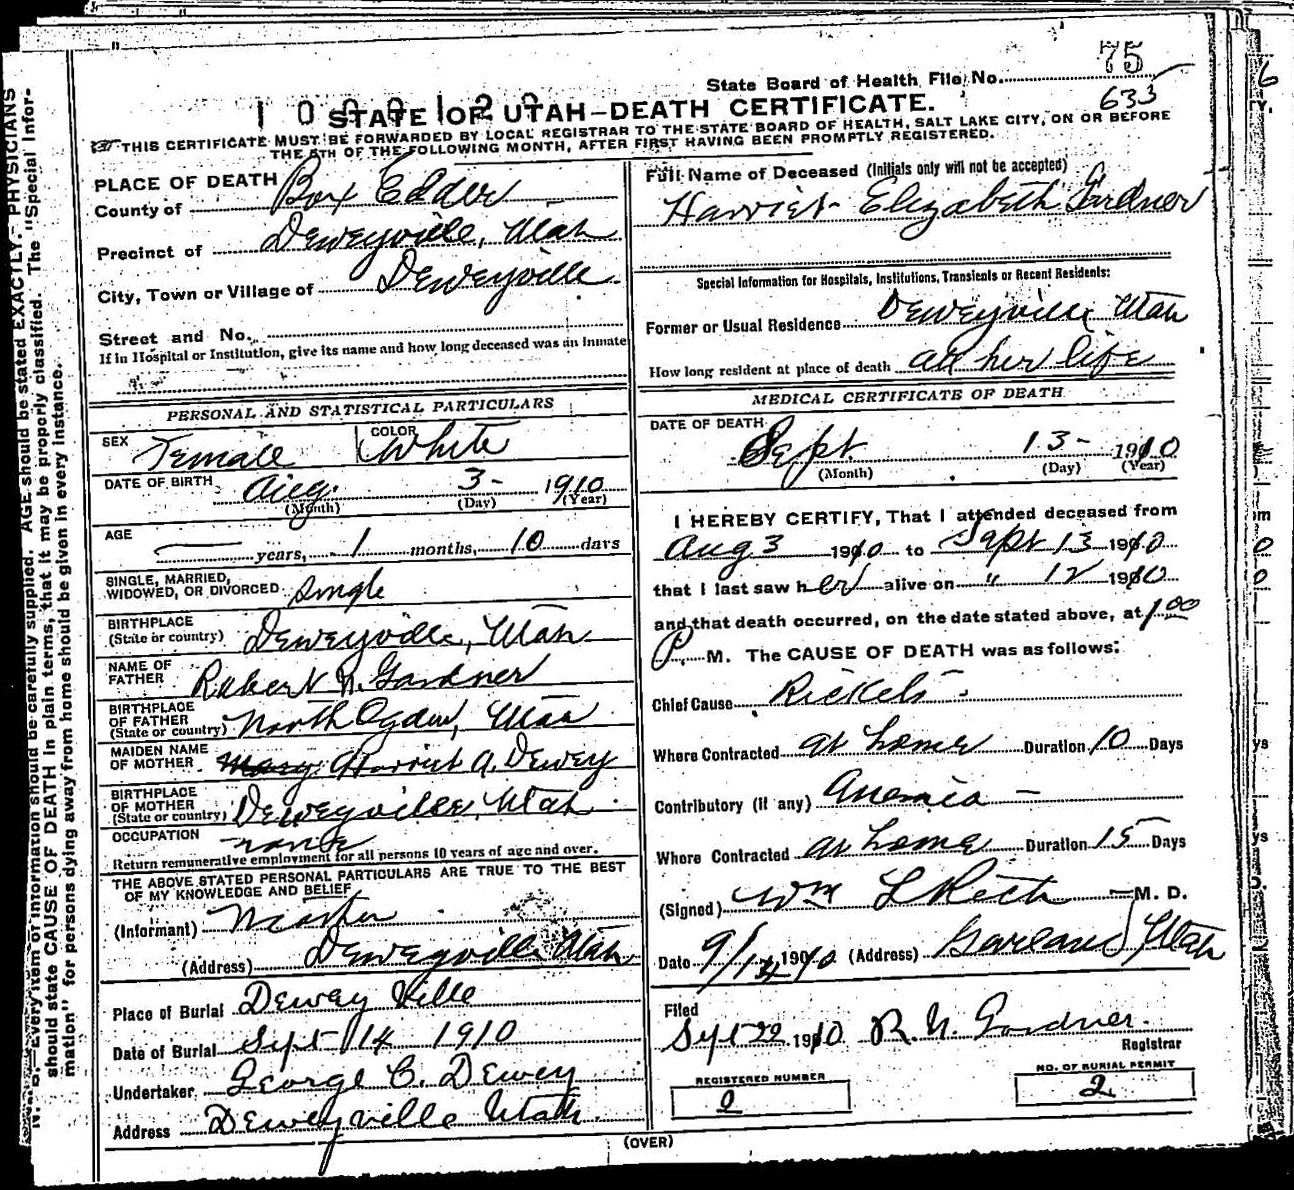 75
State Board of Health File No.
633
1 0 0 0 1 2 9
STATE OF UTAH—DEATH CERTIFICATE.
THIS CERTIFICATE MUST BE FORWARDED BY LOCAL REGISTRAR TO THE STATE BOARD OF HEALTH, SALT LAKE CITY, ON OR BEFORE
THE 5TH OF THE FOLLOWING MONTH, AFTER FIRST HAVING BEEN PROMPTLY REGISTERED.
PLACE OF DEATH
County of Box Elder
Precinct of Deweyville, Utah
City, Town or Village of Deweyville
Street and No.
If in Hospital or Institution, give its name and how long deceased was an inmate
PERSONAL AND STATISTICAL PARTICULARS
SEX Female COLOR White
DATE OF BIRTH Aug. 3- 1910
(Month) (Day) (Year)
AGE years, 1 months, 10 days
SINGLE, MARRIED,
WIDOWED, OR DIVORCED Single
BIRTHPLACE
(State or country) Deweyville, Utah
NAME OF
FATHER Robert N. Gardner
BIRTHPLACE
OF FATHER
(State or country) North Ogden, Utah
MAIDEN NAME
OF MOTHER Mary Harriet A. Dewey
BIRTHPLACE
OF MOTHER
(State or country) Deweyville, Utah
OCCUPATION none
Return remunerative employment for all persons 10 years of age and over.
THE ABOVE STATED PERSONAL PARTICULARS ARE TRUE TO THE BEST
OF MY KNOWLEDGE AND BELIEF
(Informant)
(Address) Deweyville Utah
Place of Burial Dewey Ville
Date of Burial Sept 14 1910
Undertaker George C. Dewey
Address Deweyville Utah
Full Name of Deceased (Initials only will not be accepted)
Harriet Elizabeth Gardner
Special Information for Hospitals, Institutions, Transients or Recent Residents:
Former or Usual Residence Deweyville Utah
How long resident at place of death all her life
MEDICAL CERTIFICATE OF DEATH
DATE OF DEATH
Sept 13- 1910
(Month) (Day) (Year)
I HEREBY CERTIFY, That I attended deceased from
Aug 3 1910 to Sept 13 1910
that I last saw her alive on " 12 1910
and that death occurred, on the date stated above, at 1.00
P. M. The CAUSE OF DEATH was as follows:
Chief Cause Rickets
Where Contracted at home Duration 10 Days
Contributory (if any) Anemia
Where Contracted at home Duration 15 Days
(Signed) Wm L M. D.
Date 9/14 1910 (Address) Garland Utah
Filed
Sept 22 1910 R. N. Gardner
Registrar
REGISTERED NUMBER
2
NO. OF BURIAL PERMIT
2
(OVER)
N. B.—Every item of information should be carefully supplied. AGE should be stated EXACTLY. PHYSICIANS
should state CAUSE OF DEATH in plain terms, that it may be properly classified. The "Special Infor-
mation" for persons dying away from home should be given in every instance.